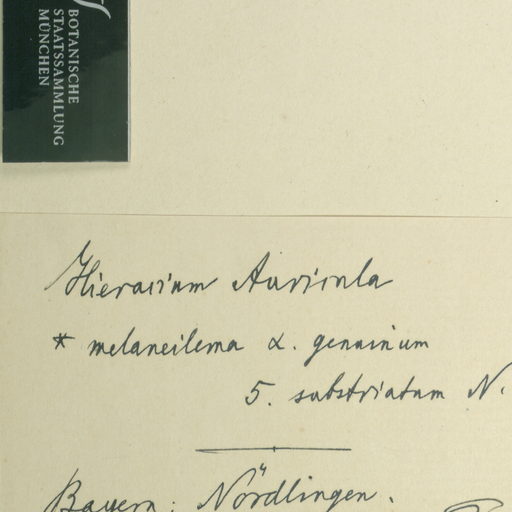 BOTANISCHE
STAATSSAMMLUNG
MÜNCHEN
Hieracium Auricula
* melaneilema α. genuinum
5. substriatum N.
Bayern: Nördlingen.